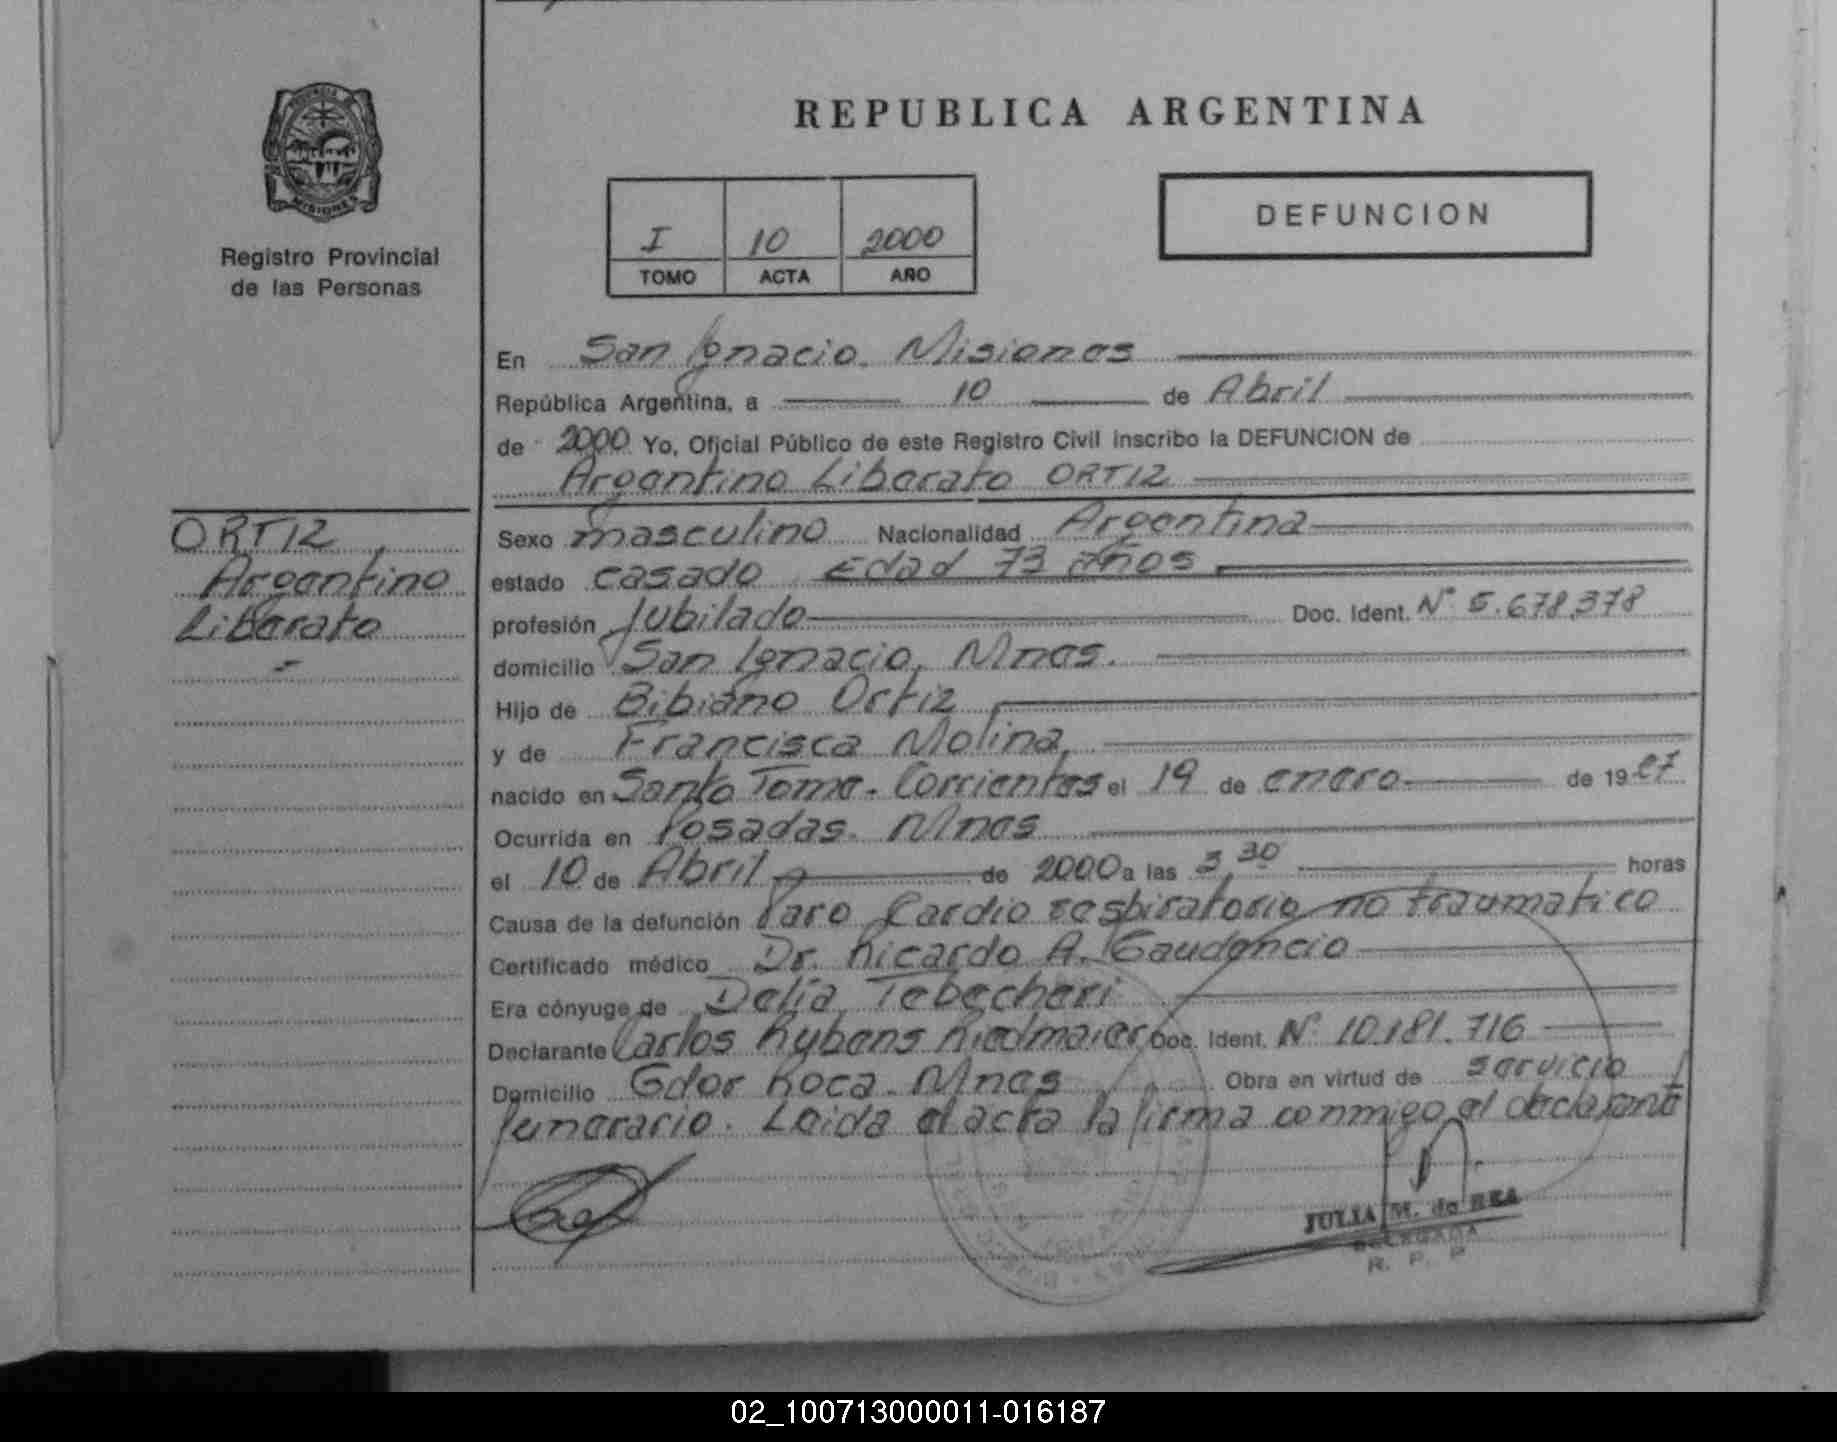 REPUBLICA ARGENTINA
PROVINCIA DE
MISIONES
Registro Provincial
de las Personas
I 10 2000
TOMO ACTA AÑO
DEFUNCION
En San Ignacio. Misiones
República Argentina, a 10 de Abril
de 2000 Yo, Oficial Público de este Registro Civil inscribo la DEFUNCION de
Argentino Liberato ORTIZ
ORTIZ,
Argentino
Liberato
Sexo masculino Nacionalidad Argentina
estado casado Edad 73 años
profesión Jubilado Doc. Ident. Nº 5.678.378
domicilio San Ignacio, Mnes.
Hijo de Bibiano Ortiz
y de Francisca Molina,
nacido en Santo Tome. Corrientes el 19 de enero de 19 27
Ocurrida en Posadas. Mnes
el 10 de Abril de 2000 a las 3 30 horas
Causa de la defunción Paro Cardio respiratorio no traumatico
Certificado médico Dr. Ricardo A. Gaudencio
Era cónyuge de Delia Tebecheri
Declarante Carlos Rubens Riedmaier Doc. Ident. Nº 10.181.716
Domicilio Gdor Roca. Mnes Obra en virtud de servicio
funerario. Leida el acta la firma conmigo el declarante
JULIA M. de REA
DELEGADA
R. P. P.
02_100713000011-016187